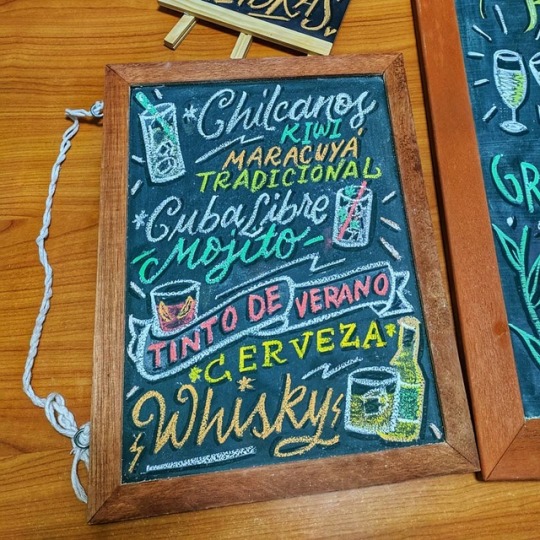 *Chilcanos
KIWI
MARACUYÁ
TRADICIONAL
*Cuba Libre
-Mojito-
TINTO DE VERANO
*CERVEZA*
Whisky
GR